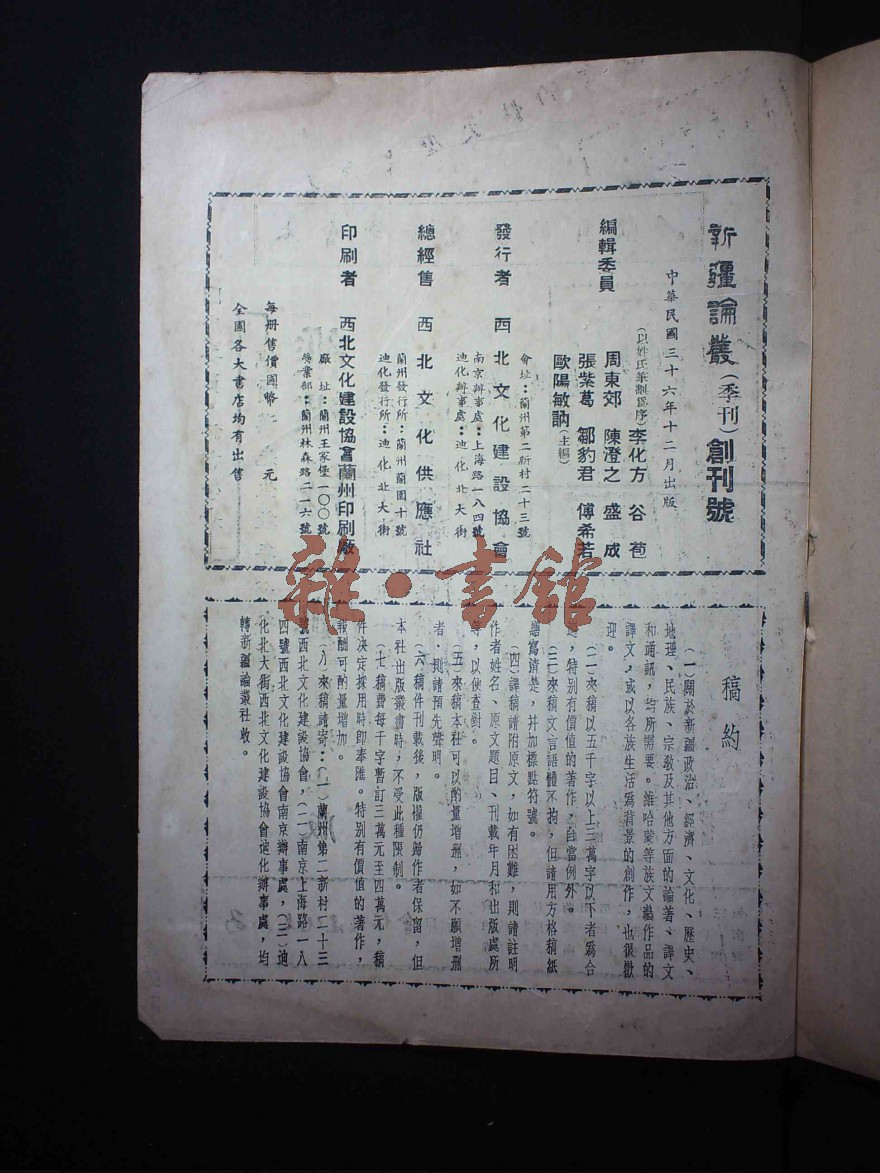 新疆論叢（季刊）創刊號
中華民國三十六年十二月出版
編輯委員
（以姓氏筆劃為序）李化方 谷苞
周東郊 陳澄之 盛成
張紫葛 鄒豹君 傅希若
歐陽敏訥（主編）
會址：蘭州第二新村二十三號
發行者 西北文化建設協會
南京辦事處：上海路一八四號
迪化辦事處：迪化北大街
總經售 西北文化供應社
蘭州發行所：蘭州蘭園十號
迪化發行所：迪化北大街
印刷者 西北文化建設協會蘭州印刷廠
廠址：蘭州王家堡一〇〇號
營業部：蘭州林森路二一六號
每冊售價國幣 元
全國各大書店均有出售
稿約
（一）關於新疆政治、經濟、文化、歷史、
地理、民族、宗教及其他方面的論著、譯文
和通訊，均所需要。維哈蒙等族文藝作品的
譯文，或以各族生活為背景的創作，也很歡
迎。
（二）來稿以五千字以上三萬字以下者為合
，特別有價值的著作，自當例外。
（三）來稿文言語體不拘，但請用方格稿紙
繕寫清楚，并加標點符號。
（四）譯稿請附原文，如有困難，則請註明
作者姓名、原文題目、刊載年月和出版處所
等，以便查對。
（五）來稿本社可以酌量增刪，如不願增刪
者，則請預先聲明。
（六）稿件刊載後，版權仍歸作者保留，但
本社出版叢書時，不受此種限制。
（七）稿費每千字暫訂三萬元至四萬元，稿
件決定採用時即奉匯。特別有價值的著作，
報酬可酌量增加。
（八）來稿請寄：（一）蘭州第二新村二十三
號西北文化建設協會，（二）南京上海路一八
四號西北文化建設協會南京辦事處，（三）迪
化北大街西北文化建設協會迪化辦事處，均
轉新疆論叢社收。
雜·書館